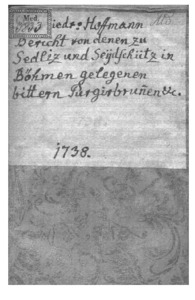 Med.
3883
iedr: Hoffmann
Bericht von denen zu
Sedliz und Seijdschütz in
Böhmen gelegenen
bittern Purgirbruñen &c.
1738.